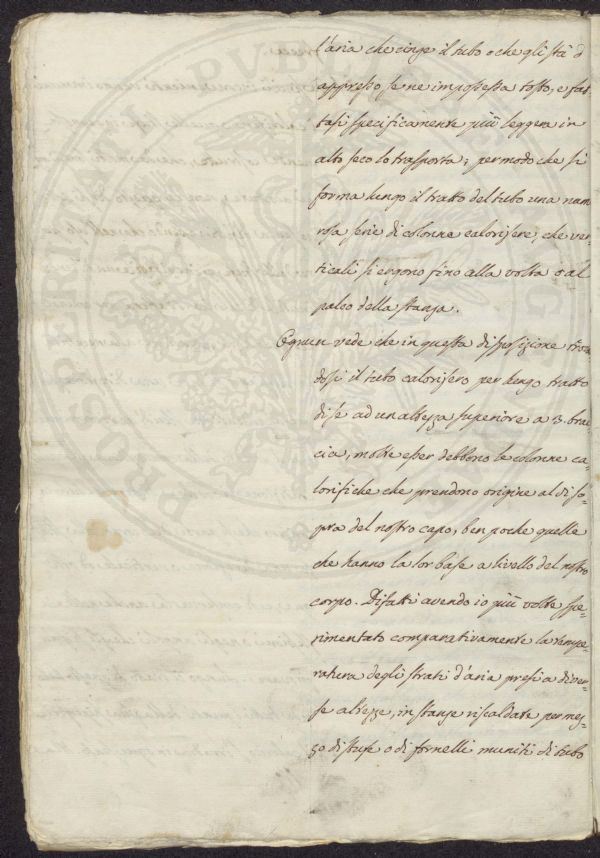 l'aria che cinge il tubo o che gli stà d'
appresso se ne impossessa tosto, e fat-
tasi specificamente più leggera in
alto seco lo trasporta; per modo che si
forma lungo il tratto del tubo una num
rosa serie di colonne calorifere, che ver-
ticali si ergono fino alla volta o al
palco della stanza.
Ognun vede che in questa disposizione tro
dosi il tubo calorifero per lungo tratto
di se ad un'altezza superiore a 3. brac-
cia, molte esser debbono le colonne ca-
lorifiche che prendono origine al di so-
pra del nostro capo, ben poche quelle
che hanno la lor base a livello del nostro
corpo. Difatti avendo io più volte spe-
rimentato comparativamente la tempe-
ratura degli strati d'aria presi a diver-
se altezze, in stanze riscaldate per mez-
zo di stufe o di fornelli muniti di tubo
PROSPERI